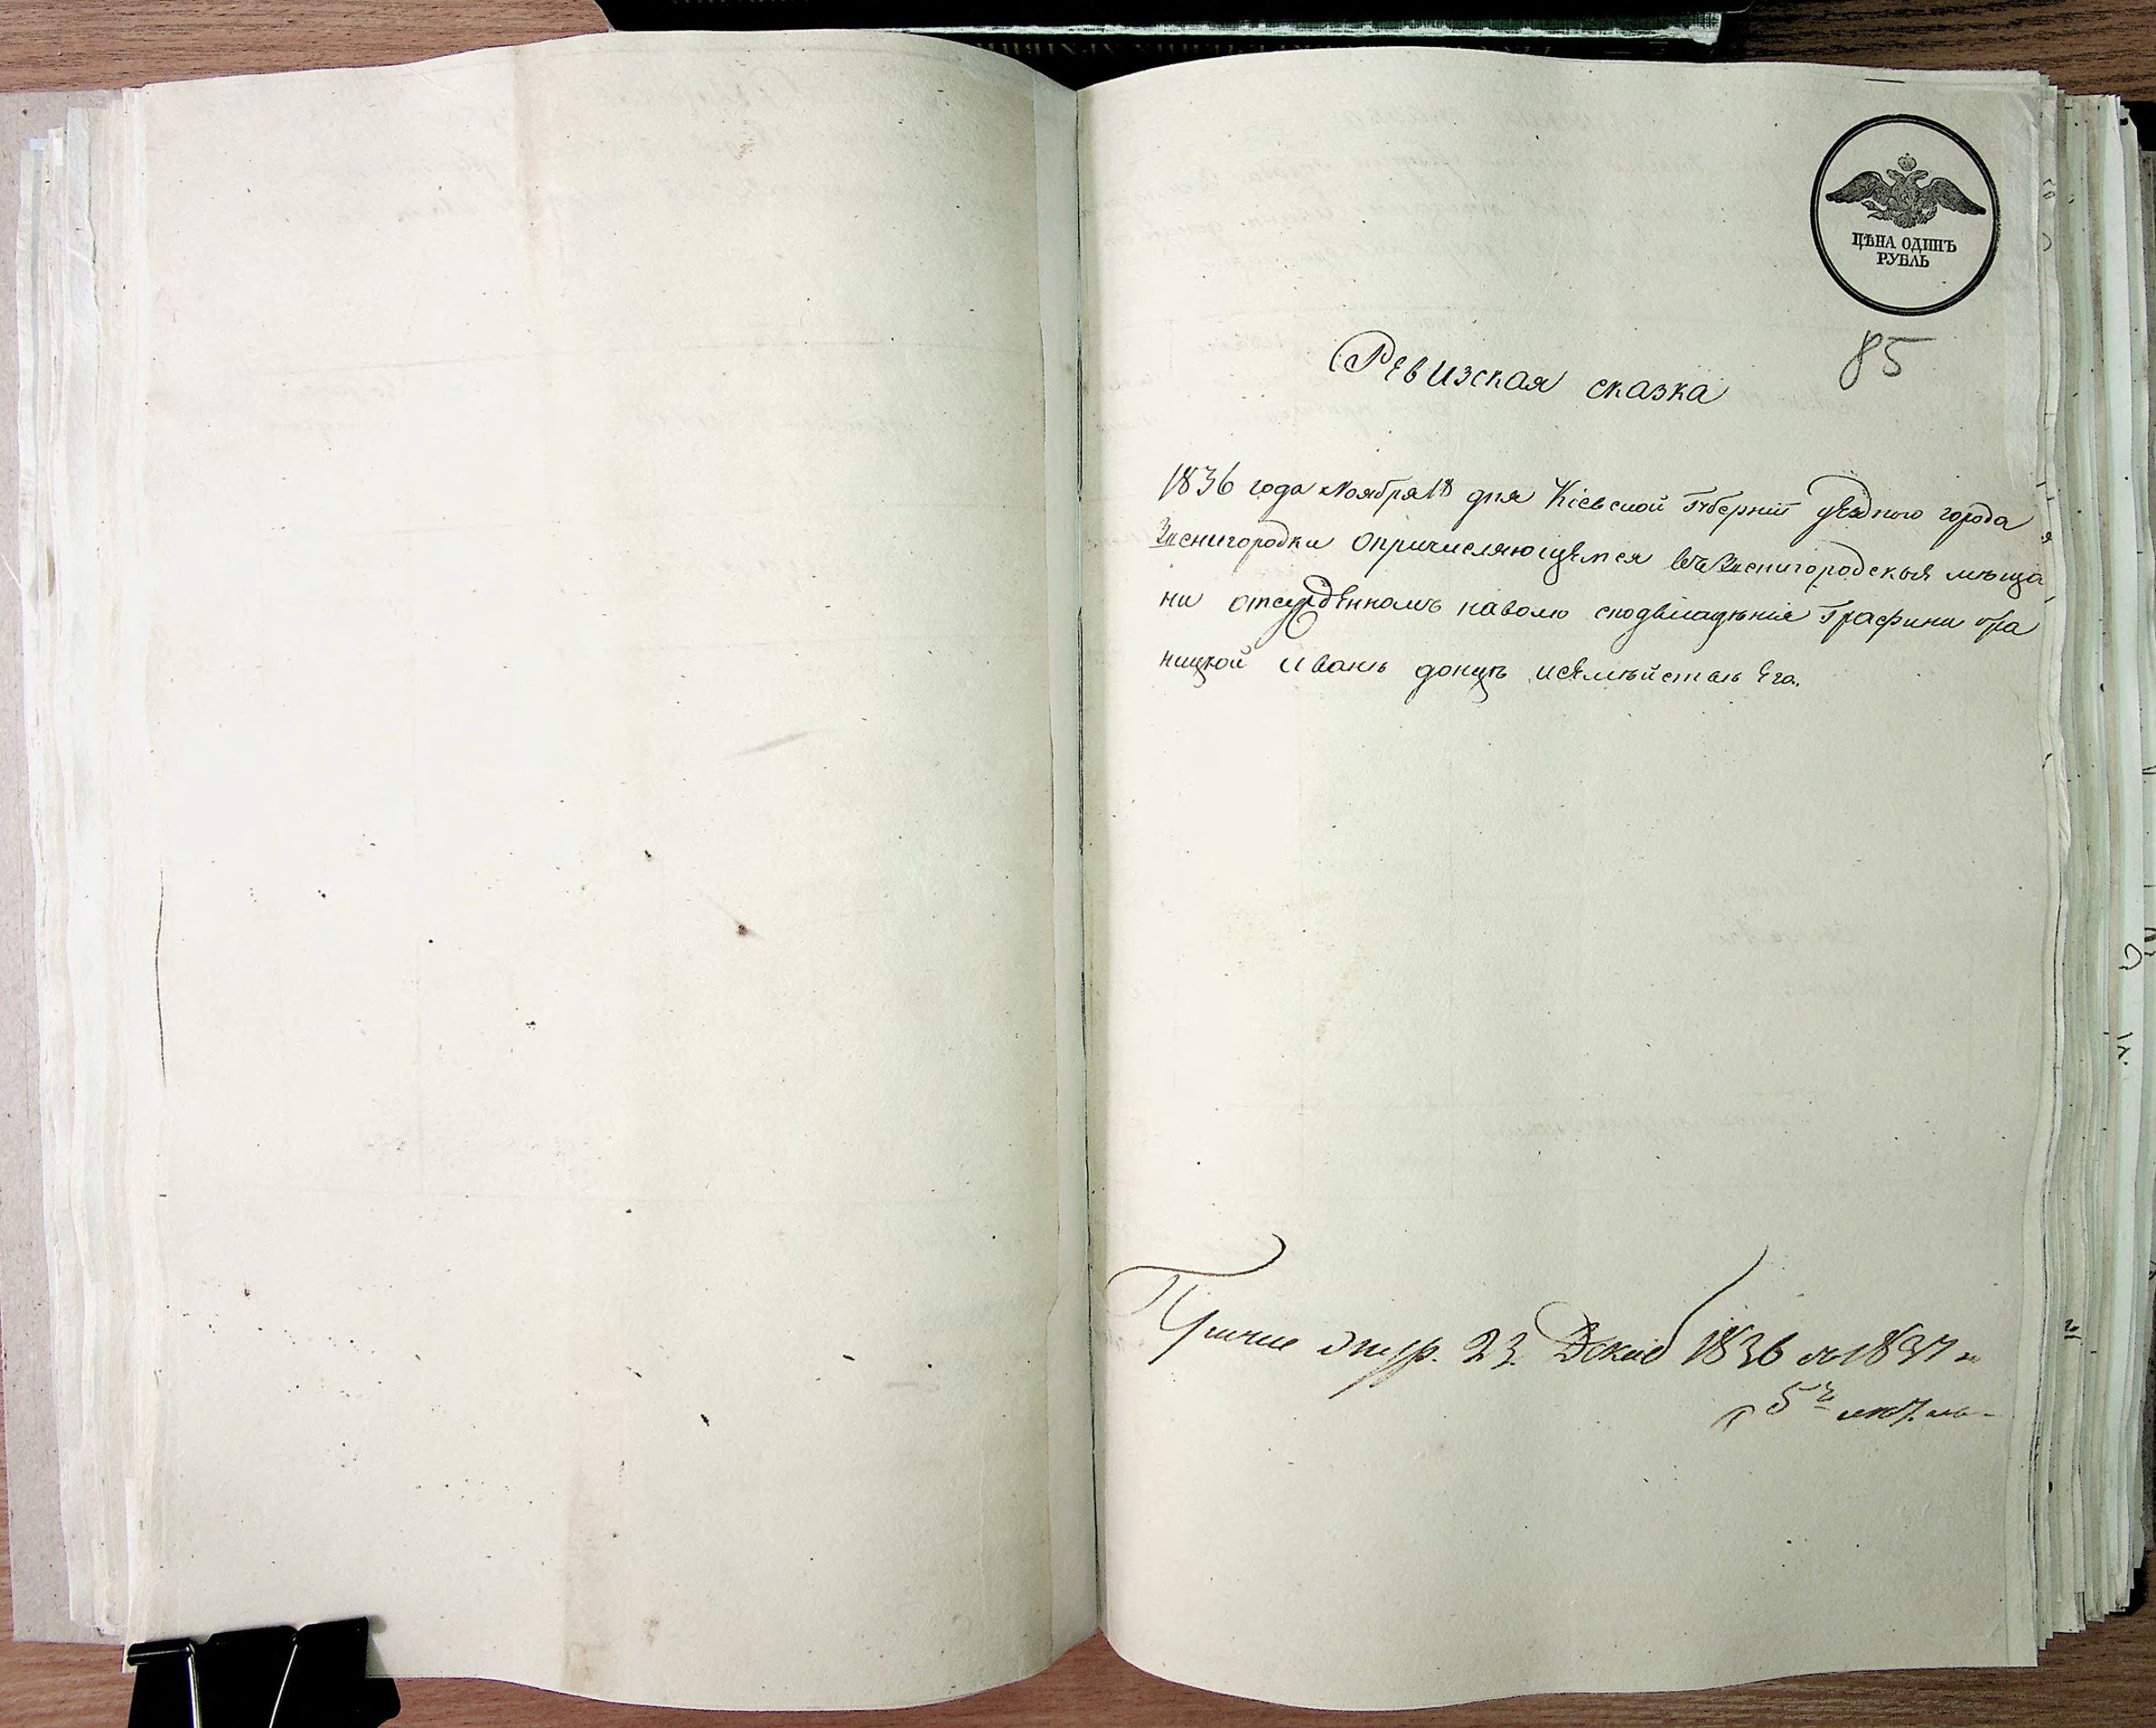 ЦѢНА ОДИНЪ
РУБЛЬ
85
Ревизская сказка
1836 года Ноября 18 дня Кіевской Губерніи уезднаго города
Звенигородки опричисляющемся въ Звенигородскія мѣща
ни отсужденномъ наволю сподвладѣнія Графини бра
ницкой Иванъ донцъ исемѣйствъ Его.
23 Декаб 1836 1837